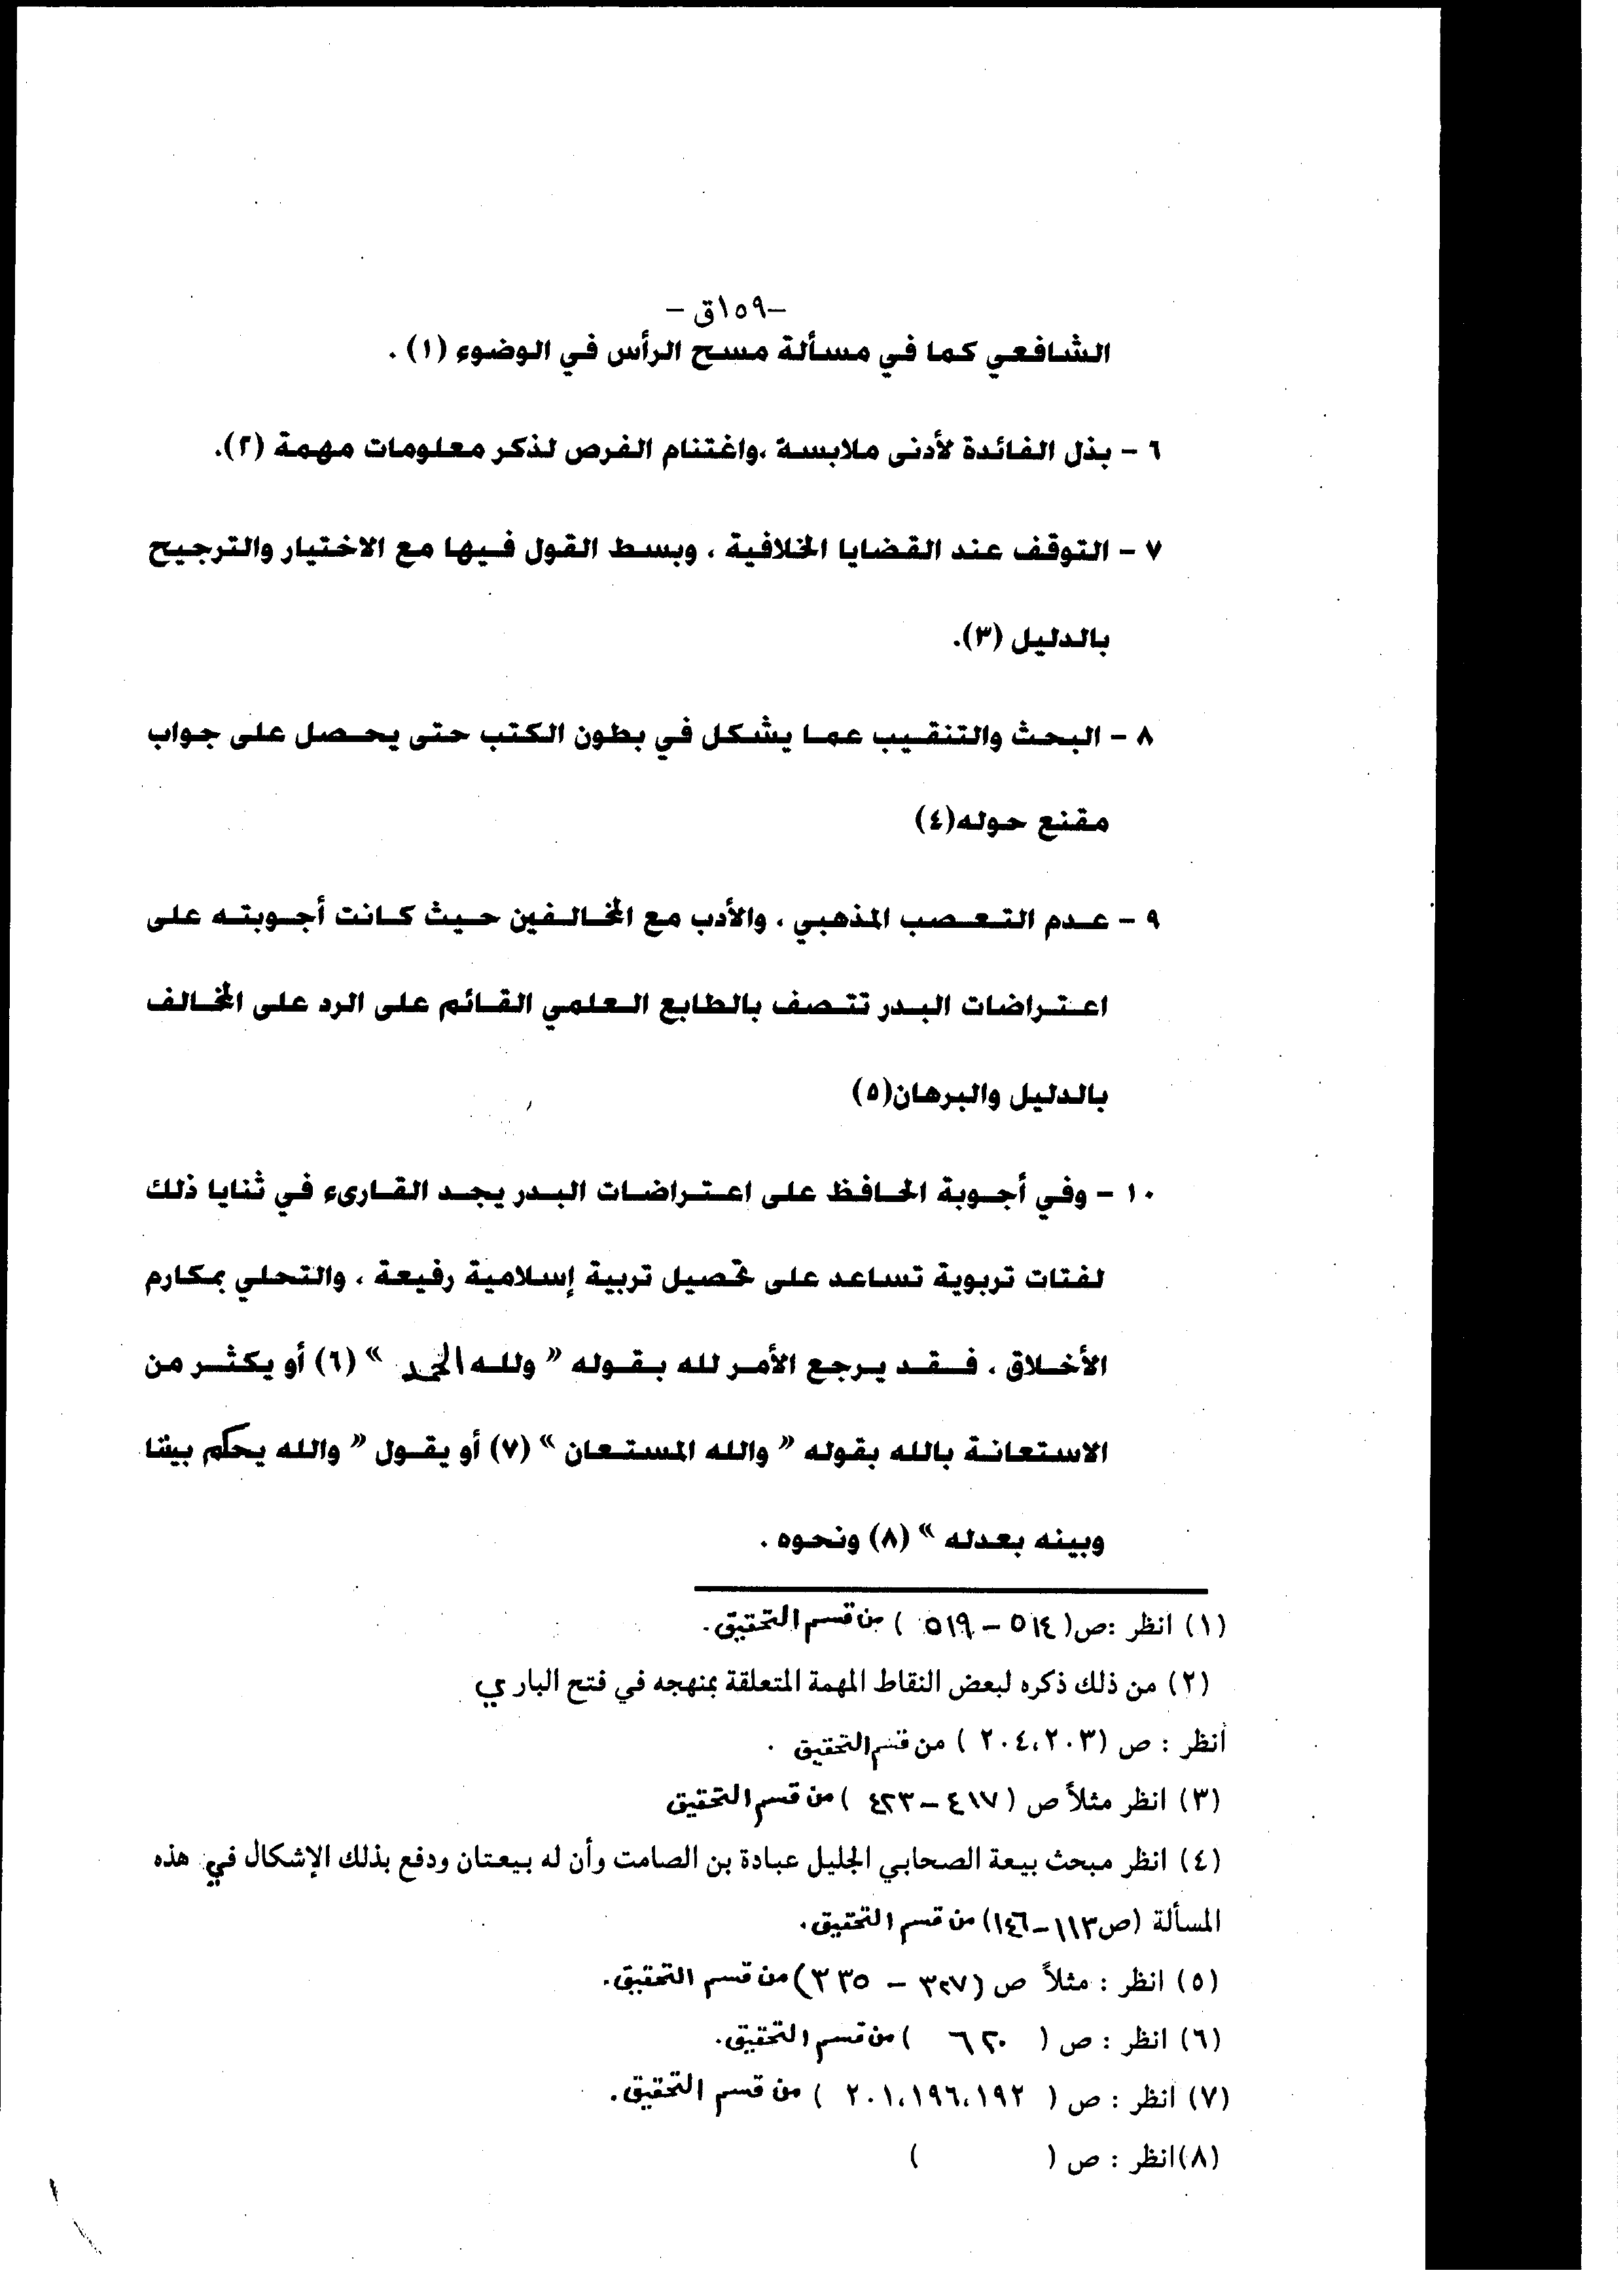 -١٥٩ق -
الشافعي كما في مسألة مسح الرأس في الوضوء (١) .
٦ - بذل الفائدة لأدنى ملابسة ،واغتنام الفرص لذكر معلومات مهمة (٢).
٧ - التوقف عند القضايا الخلافية ، وبسط القول فيها مع الاختيار والترجيح
بالدليل (٣).
٨ - البحث والتنقيب عما يشكل في بطون الكتب حتى يحصل على جواب
مقنع حوله(٤)
٩ - عدم التعصب المذهبي ، والأدب مع المخالفين حيث كانت أجوبته على
اعتراضات البدر تتصف بالطابع العلمي القائم على الرد على المخالف
بالدليل والبرهان(٥)
١٠ - وفي أجوبة الحافظ على اعتراضات البدر يجد القارىء في ثنايا ذلك
لفتات تربوية تساعد على تحصيل تربية إسلامية رفيعة ، والتحلي بمكارم
الأخلاق ، فقد يرجع الأمر لله بقوله « ولله الحمد » (٦) أو يكثر من
الاستعانة بالله بقوله « والله المستعان » (٧) أو يقول « والله يحكم بيننا
وبينه بعدله » (٨) ونحوه .
(١) انظر :ص( ٥١٤ - ٥١٩ ) من قسم التحقيق.
(٢) من ذلك ذكره لبعض النقاط المهمة المتعلقة بمنهجه في فتح الباري
أنظر : ص (٢٠٤،٢٠٣ ) من قسم التحقيق .
(٣) انظر مثلاً ص ( ٤١٧ - ٤٢٣ ) من قسم التحقيق
(٤) انظر مبحث بيعة الصحابي الجليل عبادة بن الصامت وأن له بيعتان ودفع بذلك الإشكال في هذه
المسألة (ص ١١٣-١٤٦) من قسم التحقيق.
(٥) انظر : مثلاً ص (٣٢٧ - ٣٣٥) من قسم التحقيق.
(٦) انظر : ص ( ٦٢٠ ) من قسم التحقيق.
(٧) انظر : ص ( ٢٠١،١٩٦،١٩٢ ) من قسم التحقيق.
(٨)انظر : ص ( )